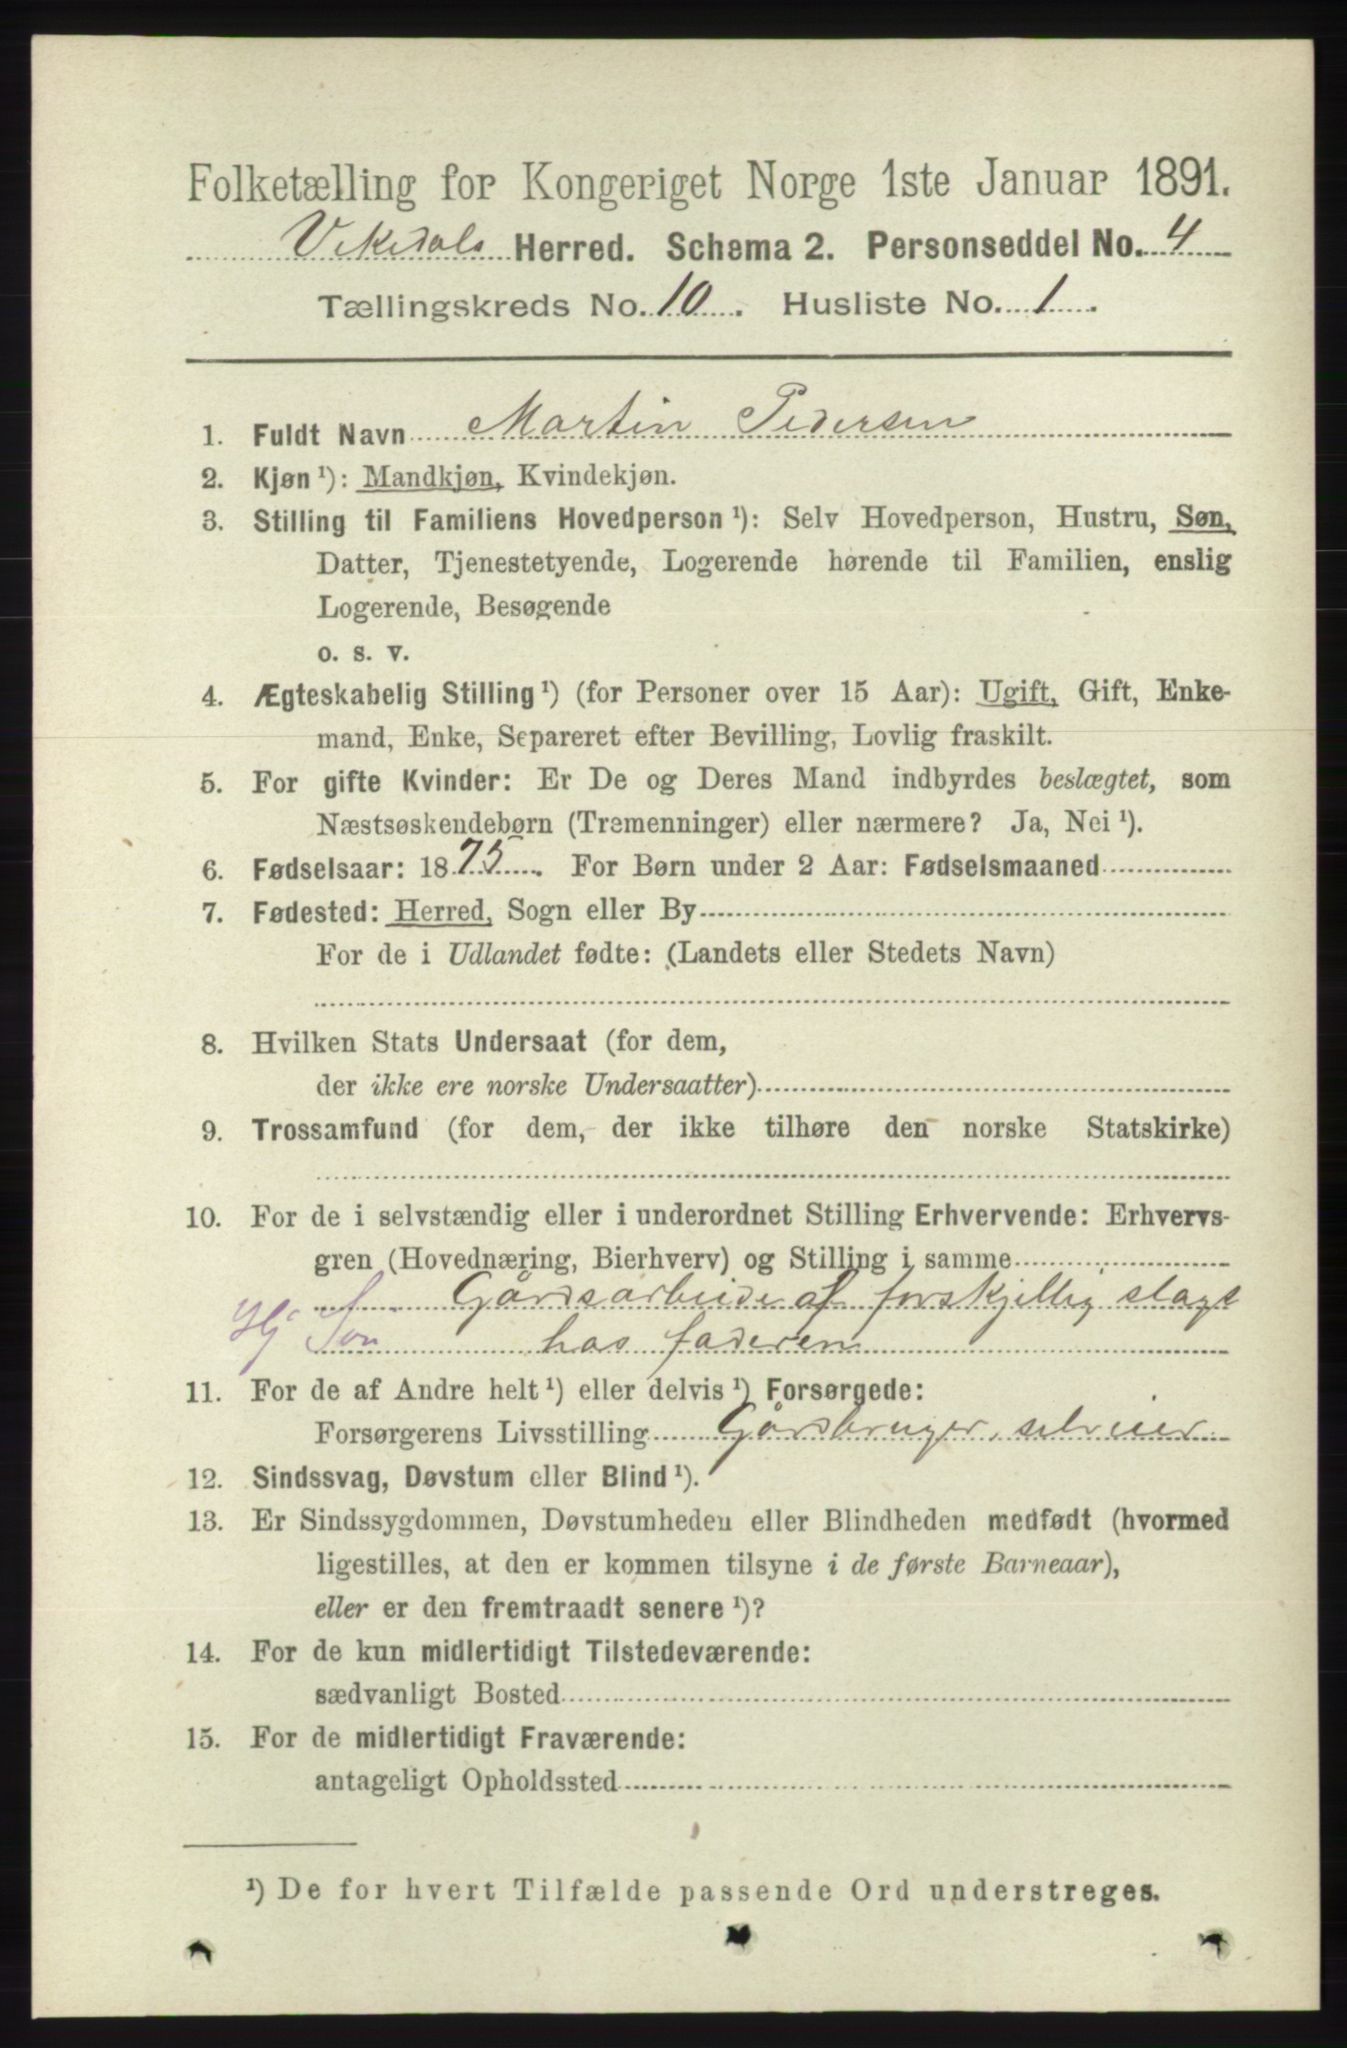 Folketælling for Kongeriget Norge 1ste Januar 1891.
Vikedals Herred. Schema 2. Personseddel No. 4
Tællingskreds No. 10. Husliste No. 1.
1. Fuldt Navn Martin Pedersen
2. Kjøn ¹): Mandkjøn, Kvindekjøn.
3. Stilling til Familiens Hovedperson ¹): Selv Hovedperson, Hustru, Søn,
Datter, Tjenestetyende, Logerende hørende til Familien, enslig
Logerende, Besøgende
o. s. v.
4. Ægteskabelig Stilling ¹) (for Personer over 15 Aar): Ugift, Gift, Enke-
mand, Enke, Separeret efter Bevilling, Lovlig fraskilt.
5. For gifte Kvinder: Er De og Deres Mand indbyrdes beslægtet, som
Næstsøskendebørn (Tremenninger) eller nærmere? Ja, Nei ¹).
6. Fødselsaar: 1875. For Børn under 2 Aar: Fødselsmaaned
7. Fødested: Herred, Sogn eller By
For de i Udlandet fødte: (Landets eller Stedets Navn)
8. Hvilken Stats Undersaat (for dem,
der ikke ere norske Undersaatter)
9. Trossamfund (for dem, der ikke tilhøre den norske Statskirke)
10. For de i selvstændig eller i underordnet Stilling Erhvervende: Erhvervs-
gren (Hovednæring, Bierhverv) og Stilling i samme
Gårdsarbeide af forskjellig slags
Hj Søn hos faderen
11. For de af Andre helt ¹) eller delvis ¹) Forsørgede:
Forsørgerens Livsstilling Gårdbruger, selveier
12. Sindssvag, Døvstum eller Blind ¹).
13. Er Sindssygdommen, Døvstumheden eller Blindheden medfødt (hvormed
ligestilles, at den er kommen tilsyne i de første Barneaar),
eller er den fremtraadt senere ¹)?
14. For de kun midlertidigt Tilstedeværende:
sædvanligt Bosted
15. For de midlertidigt Fraværende:
antageligt Opholdssted
¹) De for hvert Tilfælde passende Ord understreges.